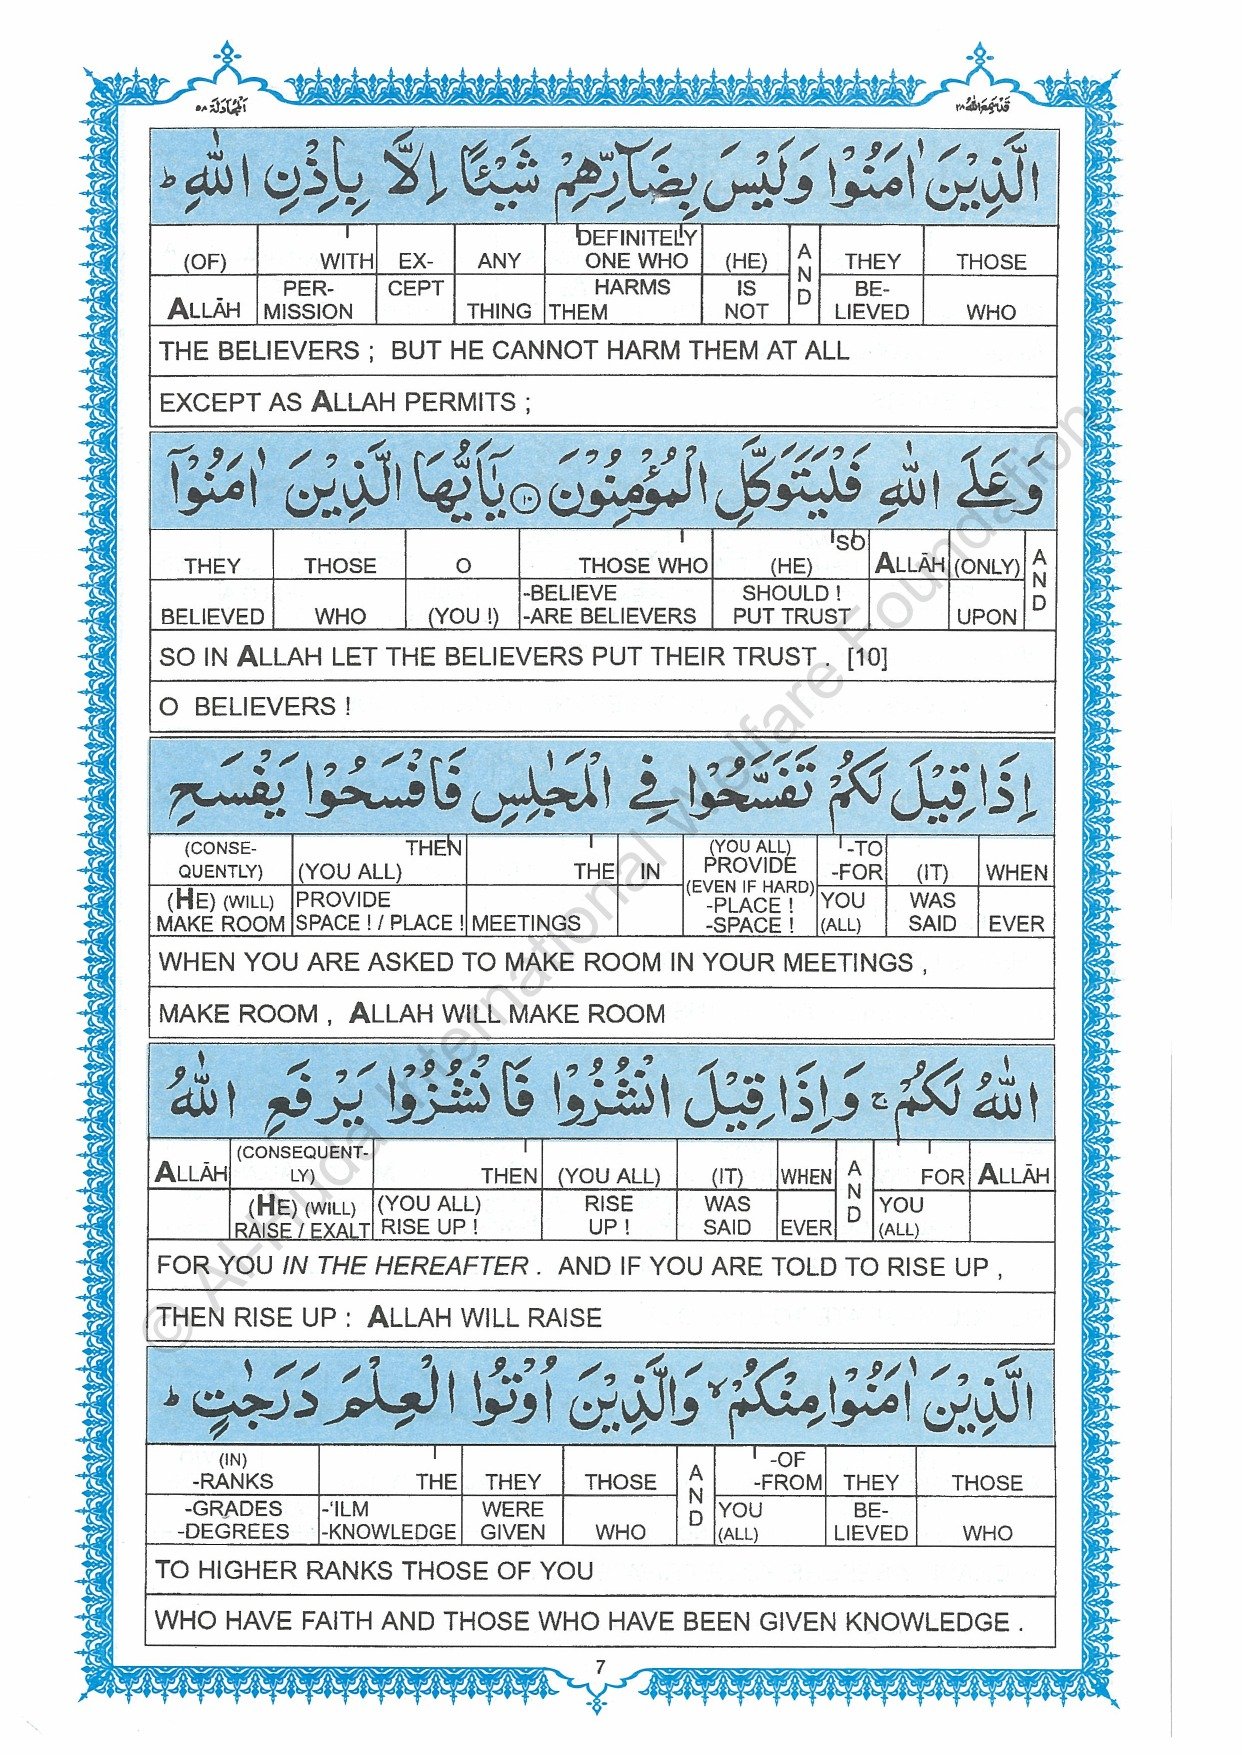 المجادلة ٥٨
قد سمع الله ٢٨
الَّذِيْنَ اٰمَنُوْا وَلَيْسَ بِضَآرِّهِمْ شَيْـًٔا اِلَّا بِاِذْنِ اللّٰهِ ؕ
(OF) WITH EX- ANY DEFINITELY ONE WHO (HE) AND THEY THOSE
ALLĀH PER-MISSION CEPT THING HARMS THEM IS NOT BE-LIEVED WHO
THE BELIEVERS ; BUT HE CANNOT HARM THEM AT ALL
EXCEPT AS ALLAH PERMITS ;
وَ عَلَى اللّٰهِ فَلْيَتَوَكَّلِ الْمُؤْمِنُوْنَ ۝۱۰ يٰۤاَيُّهَا الَّذِيْنَ اٰمَنُوْۤا
THEY THOSE O THOSE WHO (HE) SO ALLĀH (ONLY) AND
BELIEVED WHO (YOU !) -BELIEVE -ARE BELIEVERS SHOULD ! PUT TRUST UPON
SO IN ALLAH LET THE BELIEVERS PUT THEIR TRUST . [10]
O BELIEVERS !
اِذَا قِيْلَ لَكُمْ تَفَسَّحُوْا فِي الْمَجٰلِسِ فَافْسَحُوْا يَفْسَحِ
(CONSE-QUENTLY) THEN (YOU ALL) THE IN (YOU ALL) PROVIDE (EVEN IF HARD) -PLACE ! -SPACE ! -TO -FOR (IT) WHEN
(HE) (WILL) MAKE ROOM PROVIDE SPACE ! / PLACE ! MEETINGS YOU (ALL) WAS SAID EVER
WHEN YOU ARE ASKED TO MAKE ROOM IN YOUR MEETINGS ,
MAKE ROOM , ALLAH WILL MAKE ROOM
اللّٰهُ لَكُمْ ۚ وَاِذَا قِيْلَ انْشُزُوْا فَانْشُزُوْا يَرْفَعِ اللّٰهُ
ALLĀH (CONSEQUENT-LY) THEN (YOU ALL) (IT) WHEN AND FOR ALLĀH
(HE) (WILL) RAISE / EXALT (YOU ALL) RISE UP ! RISE UP ! WAS SAID EVER YOU (ALL)
FOR YOU IN THE HEREAFTER . AND IF YOU ARE TOLD TO RISE UP ,
THEN RISE UP : ALLAH WILL RAISE
الَّذِيْنَ اٰمَنُوْا مِنْكُمْ ۙ وَالَّذِيْنَ اُوْتُوا الْعِلْمَ دَرَجٰتٍ ؕ
(IN) -RANKS THE THEY THOSE AND -OF -FROM THEY THOSE
-GRADES -DEGREES -'ILM -KNOWLEDGE WERE GIVEN WHO YOU (ALL) BE-LIEVED WHO
TO HIGHER RANKS THOSE OF YOU
WHO HAVE FAITH AND THOSE WHO HAVE BEEN GIVEN KNOWLEDGE .
7
© Al-Huda International Welfare Foundation